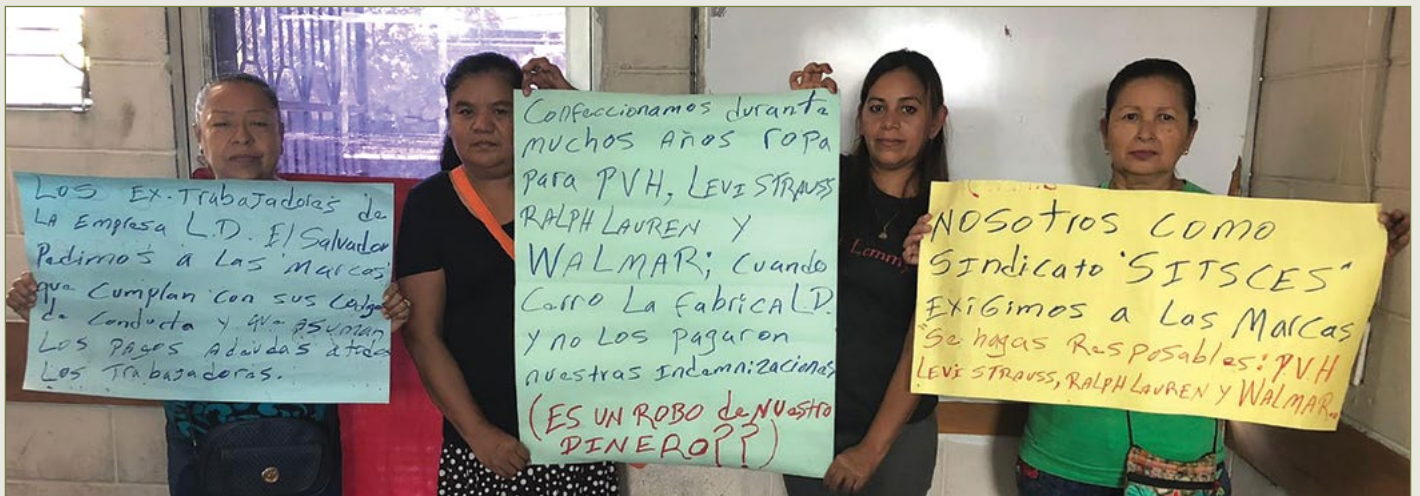 Los Ex-Trabajadores de
LA Empresa L.D. El Salvador
Pedimos a Las Marcas
que cumplan con sus
de conducta y que asuman
Los pagos Adeudas a todos
Los Trabajadoras.
Confeccionamos durante
muchos Años ropa
para PVH, LEVI STRAUSS
RALPH LAUREN Y
WALMAR; cuando
Carro La fabrica L.D.
y no Los pagaron
nuestras Indemnizaciones
(ES UN ROBO de Nuestro
DINERO??)
Lemmy
NOSOTROS COMO
SINdicato "SITSCES"
EXIGIMOS a Las Marcas
"Se hagas Resposables: PVH
LEVI STRAUSS, RALPH LAUREN Y WALMAR..